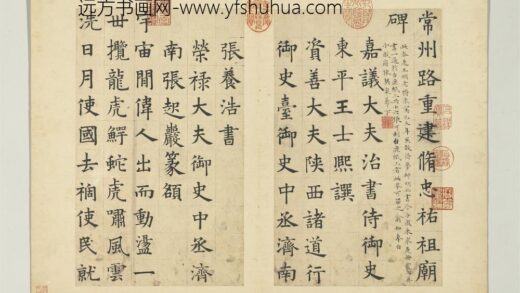 远方书画网-www.yfshuhua.com
常州路重建脩忠祐祖廟
碑
嘉議大夫治書侍御史
東平王士熙譔
資善大夫陝西諸道行
御史臺御史中丞濟南
張養浩書
榮祿大夫御史中丞濟
南張起巖篆額
宇宙閒偉人出而動盪一
世攬龍虎鰐蛇虎嘯風雲
洗日月使國去禍使民就